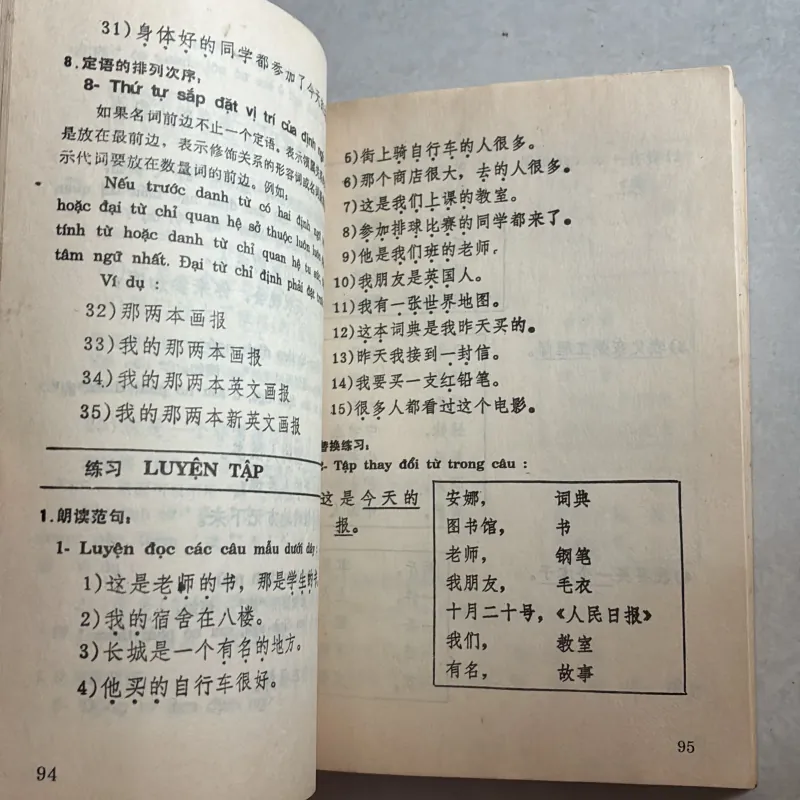 31)身体好的同学都参加了今天
8.定语的排列次序:
8- Thứ tự sắp đặt vị trí của định
如果名词前边不止一个定语,表示领属
是放在最前边,表示修饰关系的形容词或名词
示代词要放在数量词的前边。例如:
Nếu trước danh từ có hai định ngữ
hoặc đại từ chỉ quan hệ sở thuộc luôn luôn
tính từ hoặc danh từ chỉ quan hệ tu sức
tâm ngữ nhất. Đại từ chỉ định phải đặt
Ví dụ :
32)那两本画报
33)我的那两本画报
34)我的那两本英文画报
35)我的那两本新英文画报
练习 LUYỆN TẬP
1.朗读范句:
1- Luyện đọc các câu mẫu dưới đây :
1)这是老师的书,那是学生的
2)我的宿舍在八楼。
3)长城是一个有名的地方。
4)他买的自行车很好。
94
5)街上骑自行车的人很多。
6)那个商店很大,去的人很多。
7)这是我们上课的教室。
8)参加排球比赛的同学都来了。
9)他是我们班的老师。
10)我朋友是英国人。
11)我有一张世界地图。
12)这本词典是我昨天买的。
13)昨天我接到一封信。
14)我要买一支红铅笔。
15)很多人都看过这个电影。
替换练习:
- Tập thay đổi từ trong câu :
这是今天的
报。
安娜, 词典
图书馆, 书
老师, 钢笔
我朋友, 毛衣
十月二十号,《人民日报》
我们, 教室
有名, 故事
95